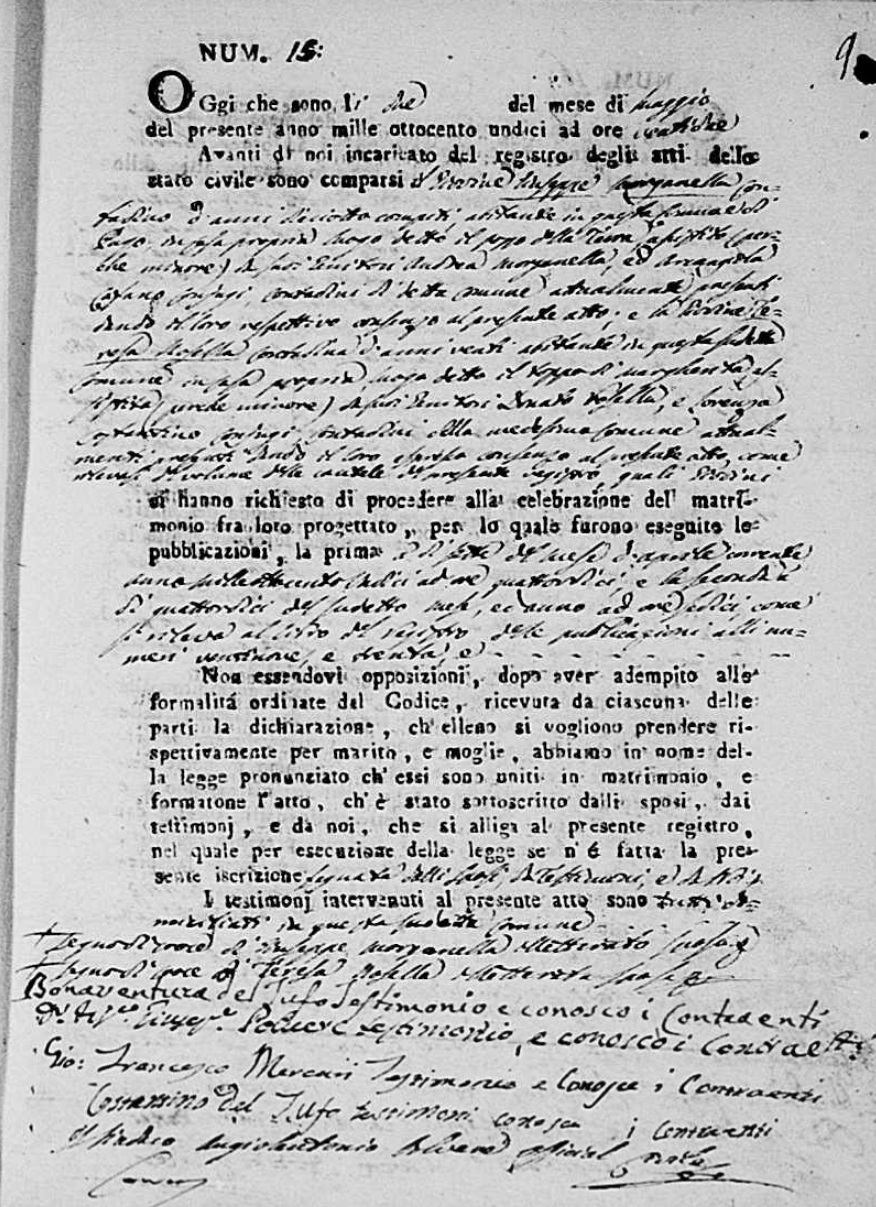 NUM. 15:
9
OGgi che sono li due del mese di maggio
del presente anno mille ottocento undici ad ore ventidue
Avanti di noi incaricato del registro degli atti dello
stato civile sono comparsi il Giovine Giuseppe Morganella con-
tadino d'anni diciotto compiti abitante in questa Comune di
Pago, in casa propria luogo detto il pozzo della Terra, assistito (per-
che minore) da suoi Genitori Andrea Morganella, ed Arcangela
conjugi, contadini di detta Comune attualmente presenti
dando il loro respettivo consenso al presente atto; e la Giovine Te-
resa Rosella contadina d'anni venti abitante in questa sudetta
Comune in casa propria luogo detto il toppo di Margherita as-
sistita (minore) da suoi Genitori Donato Rosella, e Lorenza
Costantino conjugi contadini della medesima Comune attual-
menti presenti dando il loro espresso consenso al presente atto, come
rilevasi dal volume delle cautele del presente registro, quali Giovini
ci hanno richiesto di procedere alla celebrazione del matri-
monio fra loro progettato, per lo quale furono eseguite le
pubblicazioni, la prima a dì sette del mese d'aprile corrente
anno milleottocento undici ad ore quattordici, e la seconda a
dì quattordici del sudetto mese, ed anno ad ore sedici, come
si rileva al libro del registro delle publicazioni alli nu-
meri ventinove, e trenta, e
Non essendovi opposizioni, dopo aver adempito alle
formalitá ordinate dal Codice, ricevuta da ciascuna delle
parti la dichiarazione, ch'elleno si vogliono prendere ri-
spettivamente per marito, e moglie, abbiamo in nome del-
la legge pronunziato ch'essi sono uniti in matrimonio, e
formatone l'atto, ch'è stato sottoscritto dalli sposi, dai
testimonj, e da noi, che si alliga al presente registro,
nel quale per esecuzione della legge se n'è fatta la pre-
sente iscrizione segnata dalli sposi, da testimoni, e da noi
I testimonj intervenuti al presente atto sono tutti do-
miciliati in questa sudetta Comune
+ segno di croce di Giuseppe Morganella illetterato sposo
+ segno di croce di Teresa Rosella illetterata sposa
Bonaventura del Tufo Testimonio e conosco i Contraenti
Testimonio, e conosco i Contraenti
Gio: Francesco Mercuri Testimonio e Conosce i Contraenti
Costantino del Tufo testimoni conosce i Contraenti
Il Sindaco Angiolantonio